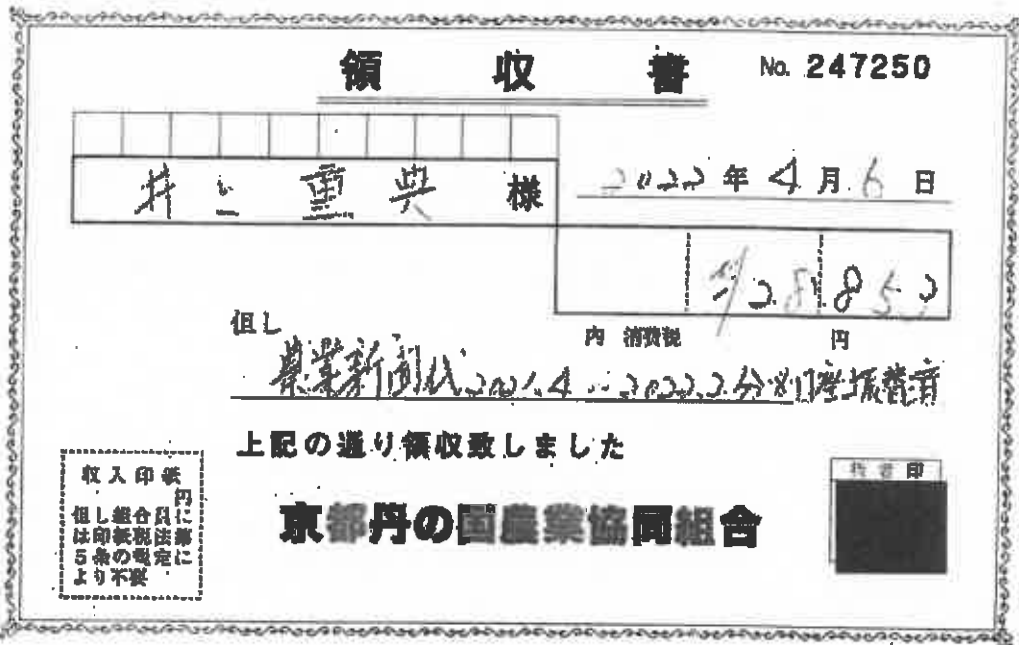 領収書 No. 247250
井上重典様
2022年4月6日
¥28,853
但し
内 消費税 円
農業新聞代 2021.4~2022.2分 ※口座振替済
上記の通り領収致しました
収入印紙
円
但し組合員に
は印紙税法第
5条の規定に
より不要
京都丹の国農業協同組合
印